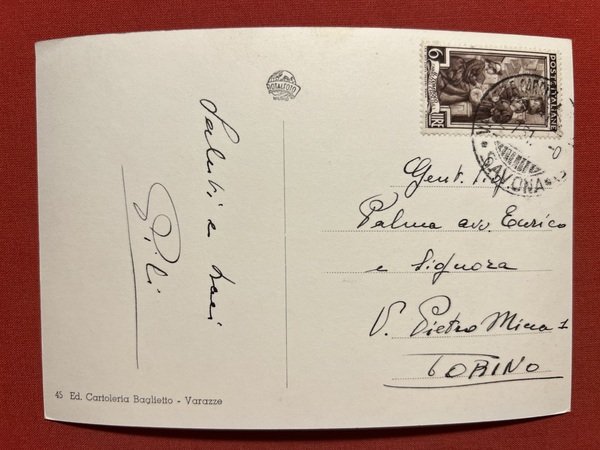 ROTALFOTO
MILANO
POSTE ITALIANE
LIRE 6
SAVONA
Saluti e baci
Pili
Gent. Sig.
Palma avv. Enrico
e Signora
V. Pietro Micca 1
TORINO
45 Ed. Cartoleria Baglietto - Varazze